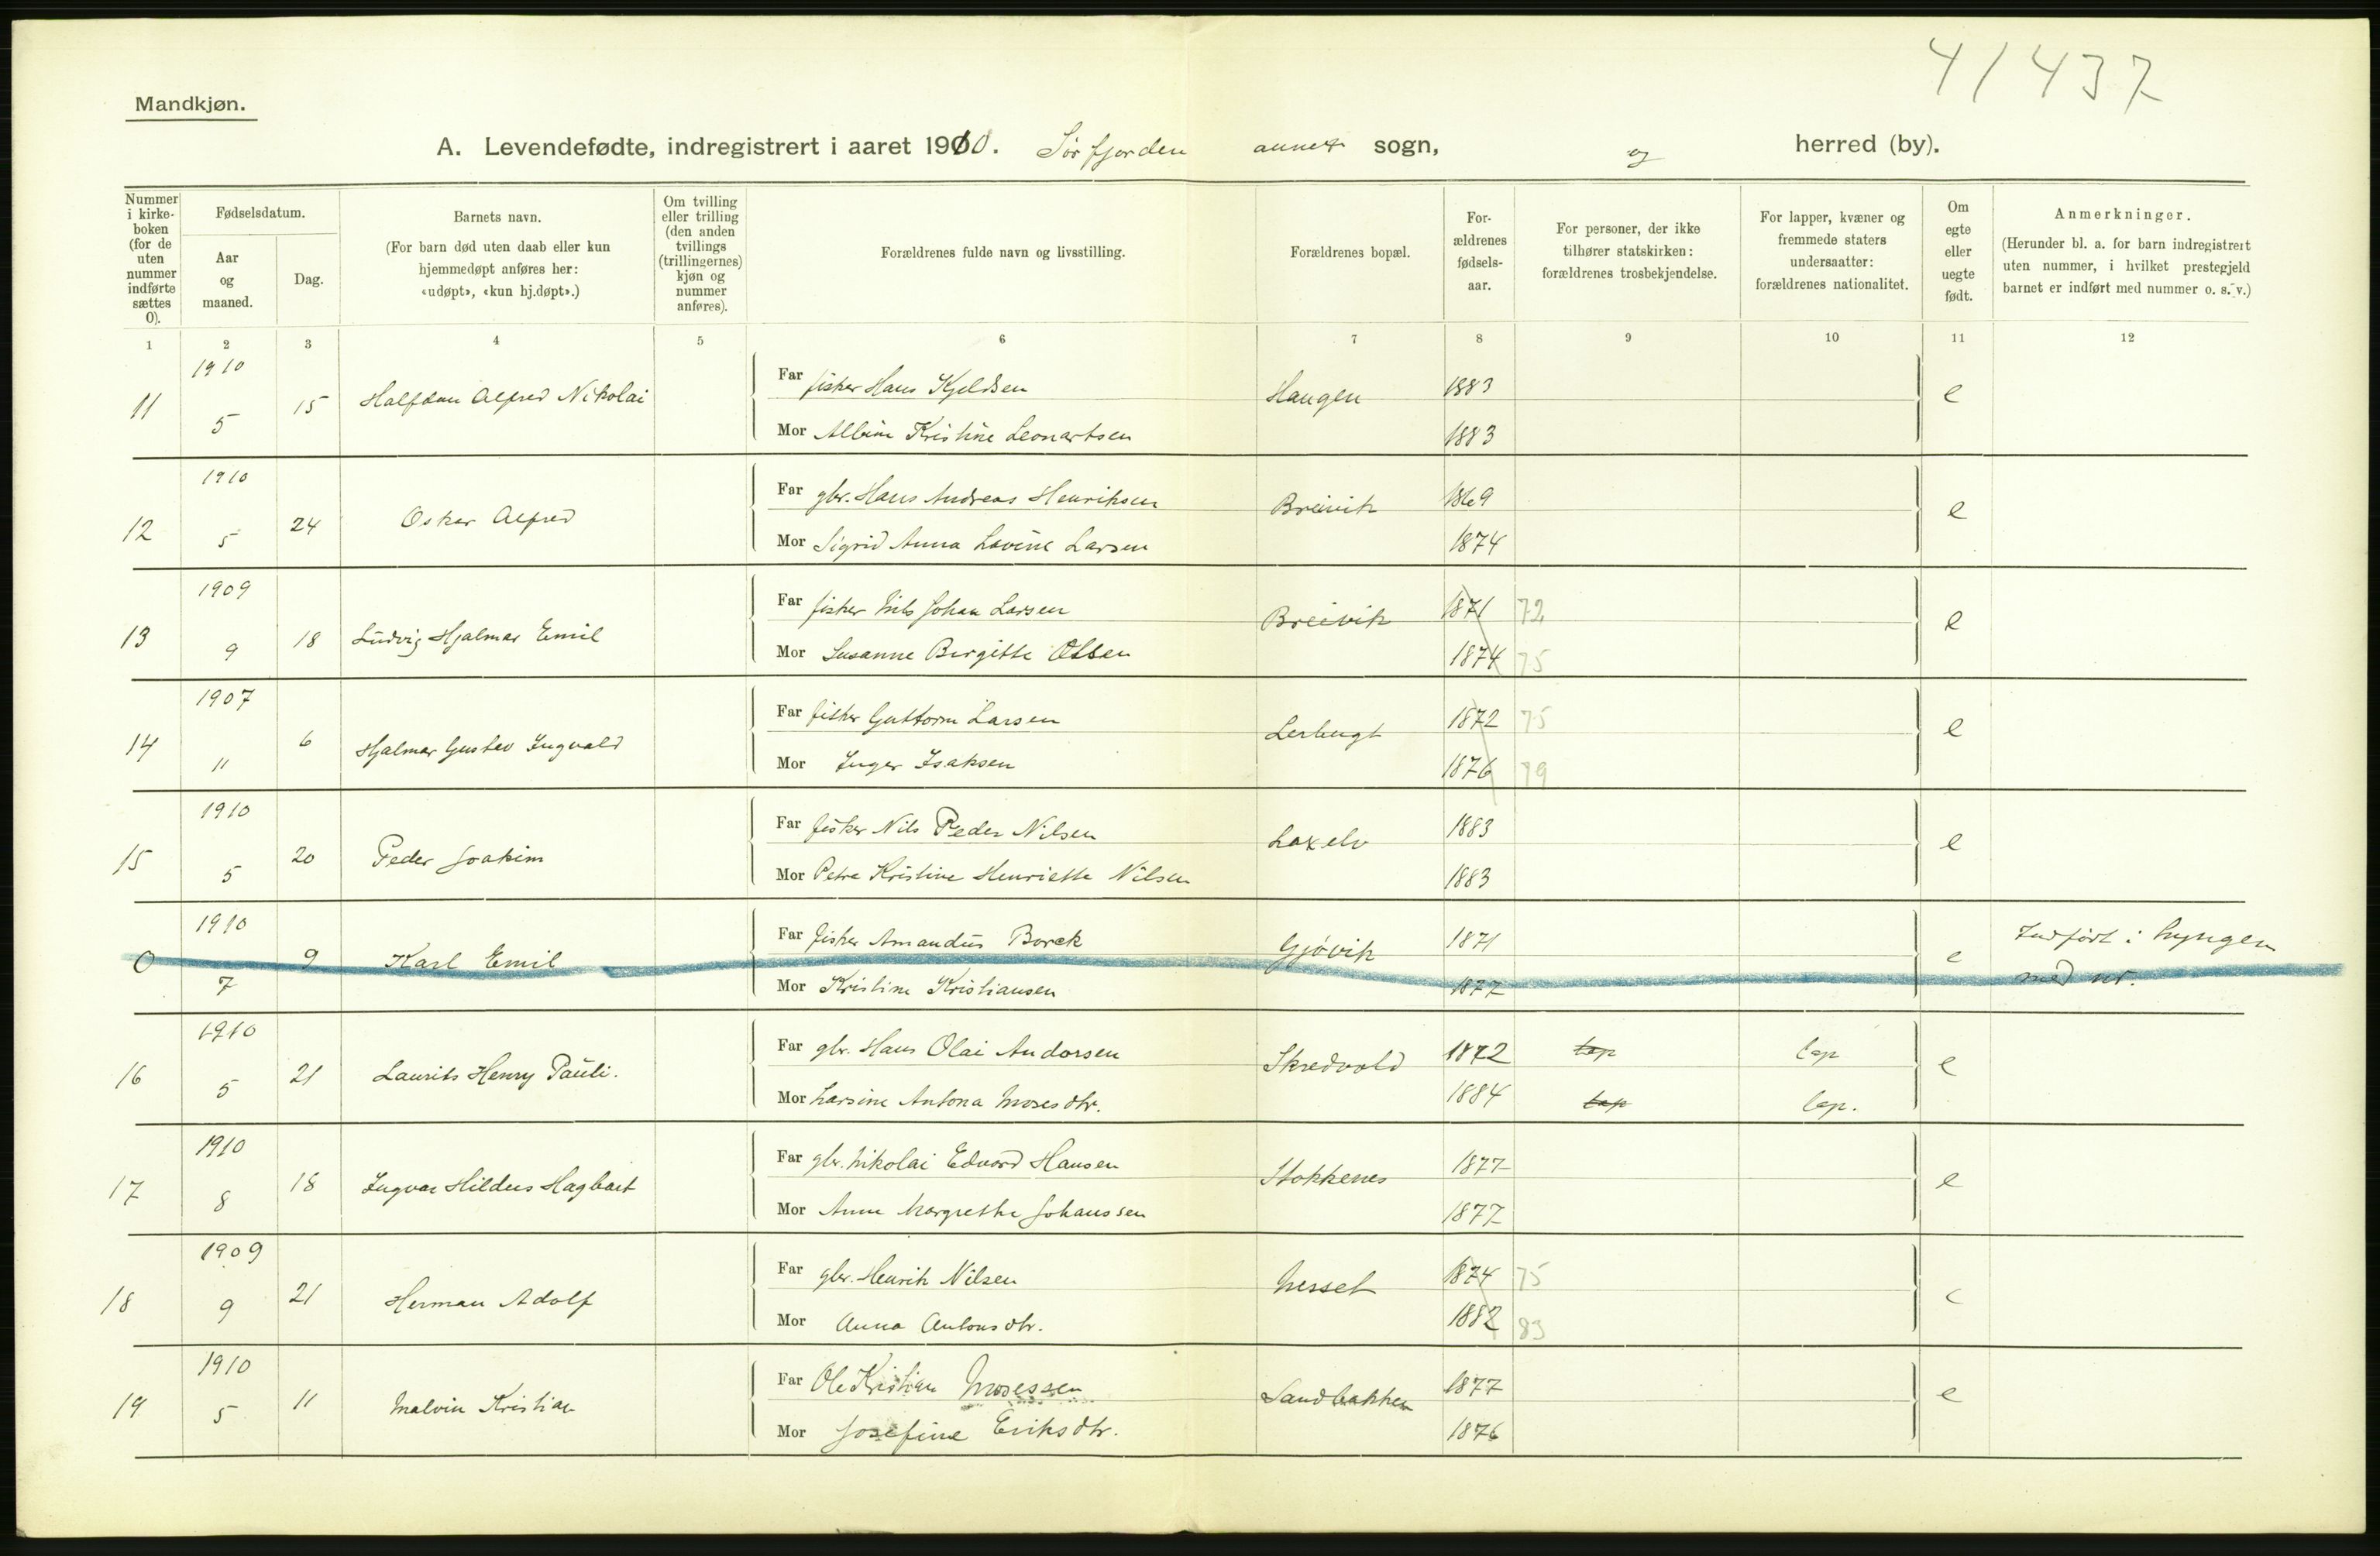 41437
Mandkjøn.
A. Levendefødte, indregistrert i aaret 1910. Sørfjorden annex sogn, og herred (by).
Nummer i kirkeboken (for de uten nummer indførte sættes 0).
Fødselsdatum.
Aar og maaned.
Dag.
Barnets navn.
(For barn død uten daab eller kun hjemmedøpt anføres her: «udøpt», «kun hj.døpt».)
Om tvilling eller trilling (den anden tvillings (trillingernes) kjøn og nummer anføres).
Forældrenes fulde navn og livsstilling.
Forældrenes bopæl.
Forældrenes fødselsaar.
For personer, der ikke tilhører statskirken: forældrenes trosbekjendelse.
For lapper, kvæner og fremmede staters undersaatter: forældrenes nationalitet.
Om egte eller uegte født.
Anmerkninger.
(Herunder bl. a. for barn indregistrert uten nummer, i hvilket prestegjeld barnet er indført med nummer o. s. v.)
1 2 3 4 5 6 7 8 9 10 11 12
11 1910 5 15 Halfdan Alfred Nikolai Far fisker Hans Kjeldsen Haugen 1883 e
Mor Albine Kristine Leonartsen 1883
12 1910 5 24 Oskar Alfred Far gbr. Hans Andreas Henriksen Breivik 1869 e
Mor Sigrid Anna Lovine Larsen 1874
13 1909 9 18 Ludvig Hjalmar Emil Far fisker Nils Johan Larsen Breivik 1871 72 e
Mor Susanne Birgitte Olsen 1874 75
14 1907 11 6 Hjalmar Gustav Ingvald Far fisker Guttorm Larsen Lerbugt 1872 75 e
Mor Inger Isaksen 1876 79
15 1910 5 20 Peder Joakim Far fisker Nils Peder Nilsen Laxelv 1883 e
Mor Petra Kristine Henriette Nilsen 1883
0 1910 7 9 Karl Emil Far fisker Amandus Borch Gjøvik 1871 e Indført i Lyngen
Mor Kristine Kristiansen 1877 med nr.
16 1910 5 21 Laurits Henry Pauli. Far gbr. Hans Olai Andorsen Skredvold 1872 lap lap e
Mor Larsine Antona Mosesdtr. 1884 lap lap.
17 1910 8 18 Ingvar Hildus Hagbart Far gbr. Nikolai Edvard Hansen Stokkenes 1877 e
Mor Anne Margrethe Johanssen 1877
18 1909 9 21 Herman Adolf Far gbr. Henrik Nilsen Nesset 1874 75 e
Mor Anna Antonsdtr. 1882 83
19 1910 5 11 Malvin Kristian Far Ole Kristian Mosessen Sandbakken 1877 e
Mor Josefine Eriksdtr. 1876